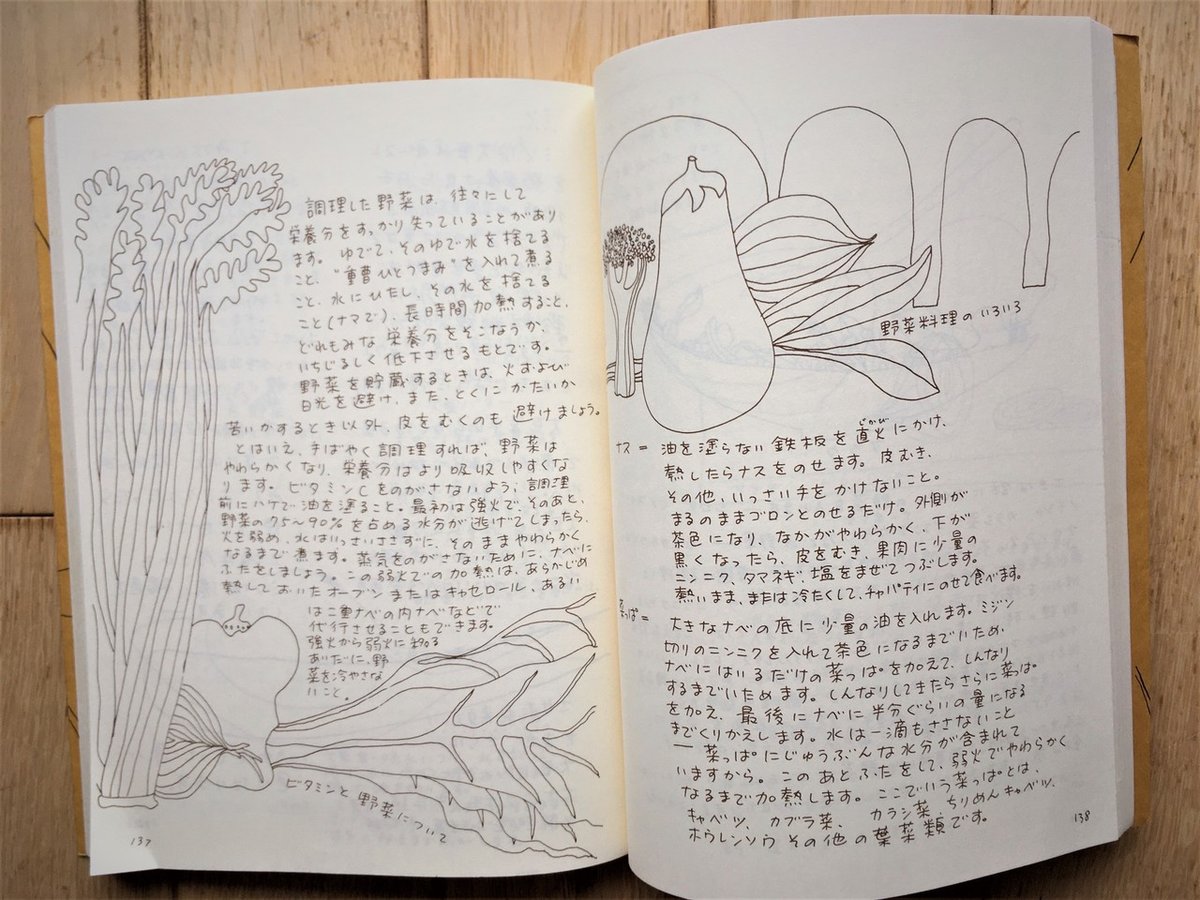 調理した野菜は、往々にして
栄養分をすっかり失っていることがあり
ます。ゆでて、そのゆで水を捨てる
こと、"重曹ひとつまみ"を入れて煮る
こと、水にひたし、その水を捨てる
こと(ナマで)、長時間加熱すること、
どれもみな栄養分をそこなうか、
いちじるしく低下させるもとです。
野菜を貯蔵するときは、火および
日光を避け、また、とくにかたいか
苦いかするとき以外、皮をむくのも避けましょう。
とはいえ、手ばやく調理すれば、野菜は
やわらかくなり、栄養分はより吸収しやすくな
ります。ビタミンCをのがさないよう、調理
前にハケで油を塗ること。最初は強火で、そのあと、
野菜の75〜90%を占める水分が逃げてしまったら、
火を弱め、水はいっさいささずに、そのままやわらかく
なるまで煮ます。蒸気をのがさないために、ナベに
ふたをしましょう。この弱火での加熱は、あらかじめ
熱しておいたオーブンまたはキャセロール、あるい
は二重ナベの内ナベなどで
代行させることもできます。
強火から弱火に移る
あいだに、野
菜を冷やさな
いこと。
ビタミンと野菜について
137
野菜料理のいろいろ
ナス= 油を塗らない鉄板を直火にかけ、
じかび
熱したらナスをのせます。皮むき、
その他、いっさい手をかけないこと。
まるのままゴロンとのせるだけ。外側が
茶色になり、なかがやわらかく、下が
黒くなったら、皮をむき、果肉に少量の
ニンニク、タマネギ、塩をまぜてつぶします。
熱いまま、または冷たくして、チャパティにのせて食べます。
菜っぱ= 大きなナベの底に少量の油を入れます。ミジン
切りのニンニクを入れて茶色になるまでいため、
ナベにはいるだけの菜っぱを加えて、しんなり
するまでいためます。しんなりしてきたらさらに菜っぱ
を加え、最後にナベに半分ぐらいの量になる
までくりかえします。水は一滴もささないこと
― 菜っぱにじゅうぶんな水分が含まれて
いますから。このあとふたをして、弱火でやわらかく
なるまで加熱します。ここでいう菜っぱとは、
キャベツ、カブラ菜、カラシ菜、ちりめんキャベツ、
ホウレンソウその他の葉菜類です。
138